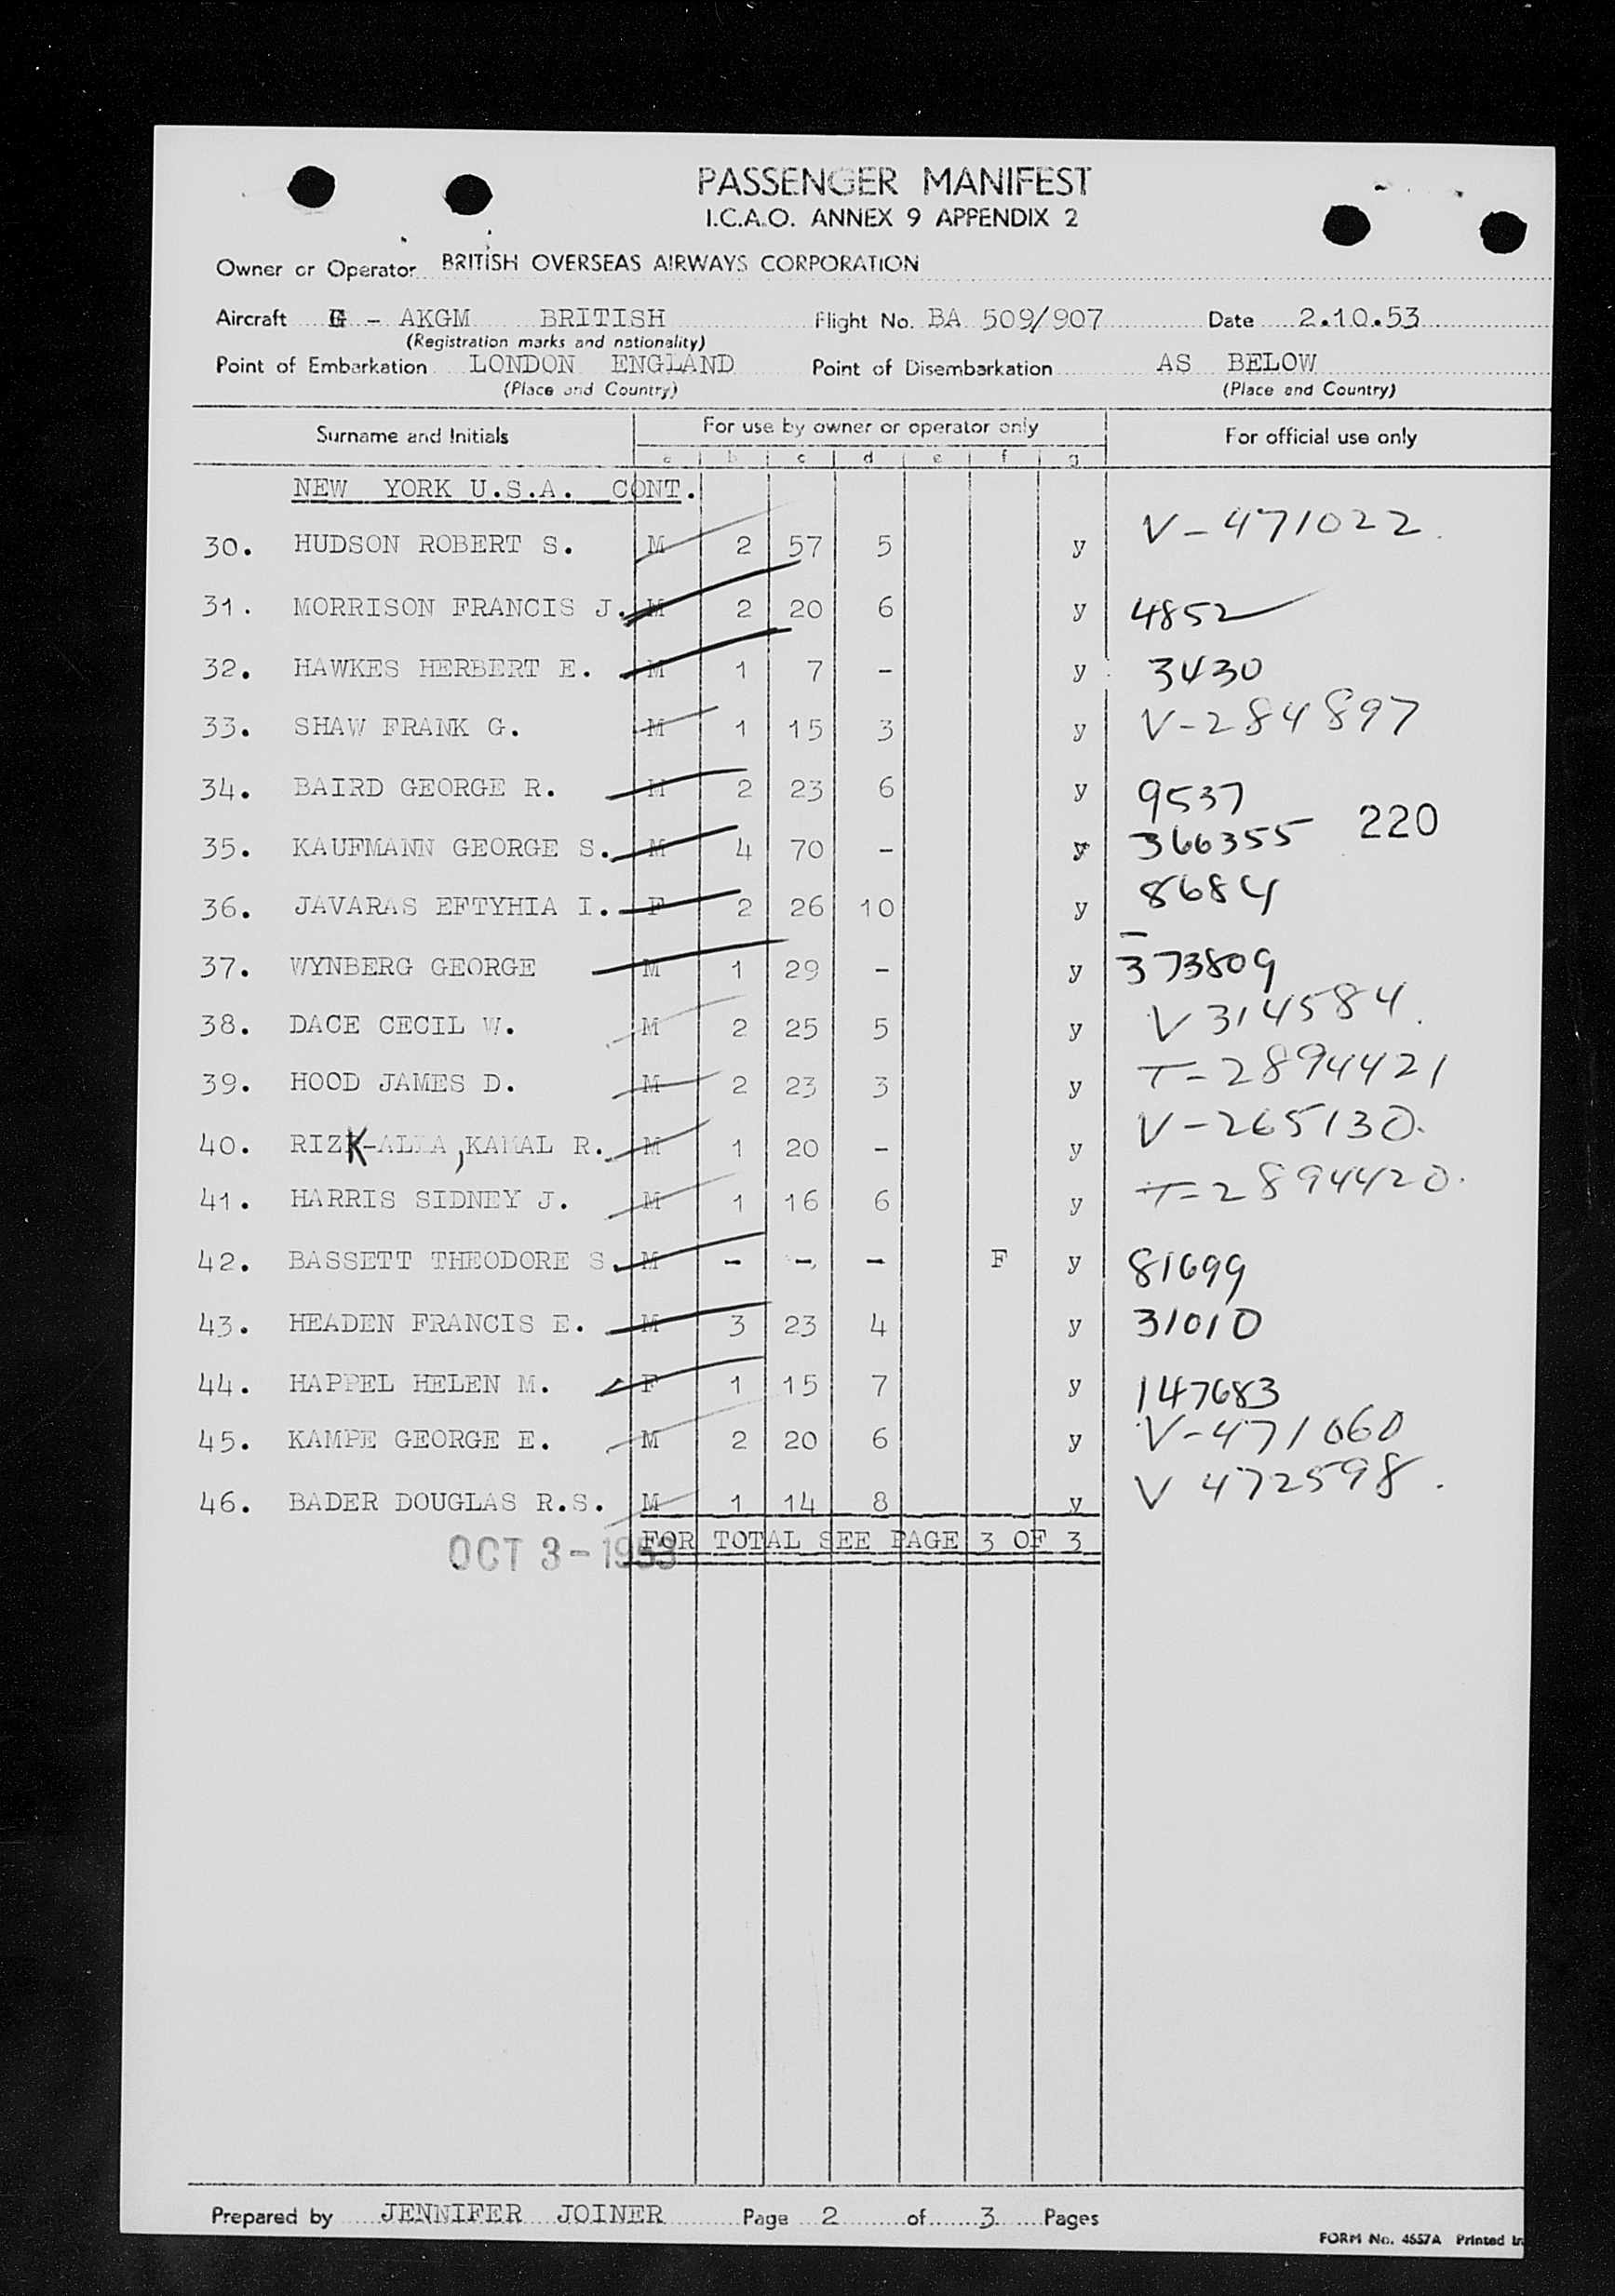 PASSENGER MANIFEST
I.C.A.O. ANNEX 9 APPENDIX 2
Owner or Operator BRITISH OVERSEAS AIRWAYS CORPORATION
Aircraft G - AKGM BRITISH Flight No. BA 509/907 Date 2.10.53
(Registration marks and nationality)
Point of Embarkation LONDON ENGLAND Point of Disembarkation AS BELOW
(Place and Country) (Place and Country)
Surname and Initials For use by owner or operator only For official use only
a b c d e f g
NEW YORK U.S.A. CONT.
30. HUDSON ROBERT S. M 2 57 5 y V-471022
31. MORRISON FRANCIS J. M 2 20 6 y 4852
32. HAWKES HERBERT E. M 1 7 - y 3430
33. SHAW FRANK G. M 1 15 3 y V-284897
34. BAIRD GEORGE R. M 2 23 6 y 9537
35. KAUFMANN GEORGE S. M 4 70 - y 366355 220
36. JAVARAS EFTYHIA I. F 2 26 10 y 8684
37. WYNBERG GEORGE M 1 29 - y 373809
38. DACE CECIL W. M 2 25 5 y V314584
39. HOOD JAMES D. M 2 23 3 y T-2894421
40. RIZK-ALLA, KAMAL R. M 1 20 - y V-265130
41. HARRIS SIDNEY J. M 1 16 6 y T-2894420
42. BASSETT THEODORE S. M - - - F y 81699
43. HEADEN FRANCIS E. M 3 23 4 y 31010
44. HAPPEL HELEN M. F 1 15 7 y 147683
45. KAMPE GEORGE E. M 2 20 6 y V-471060
46. BADER DOUGLAS R.S. M 1 14 8 y V 472598
FOR TOTAL SEE PAGE 3 OF 3
OCT 3-1953
Prepared by JENNIFER JOINER Page 2 of 3 Pages
FORM No. 4557A Printed in